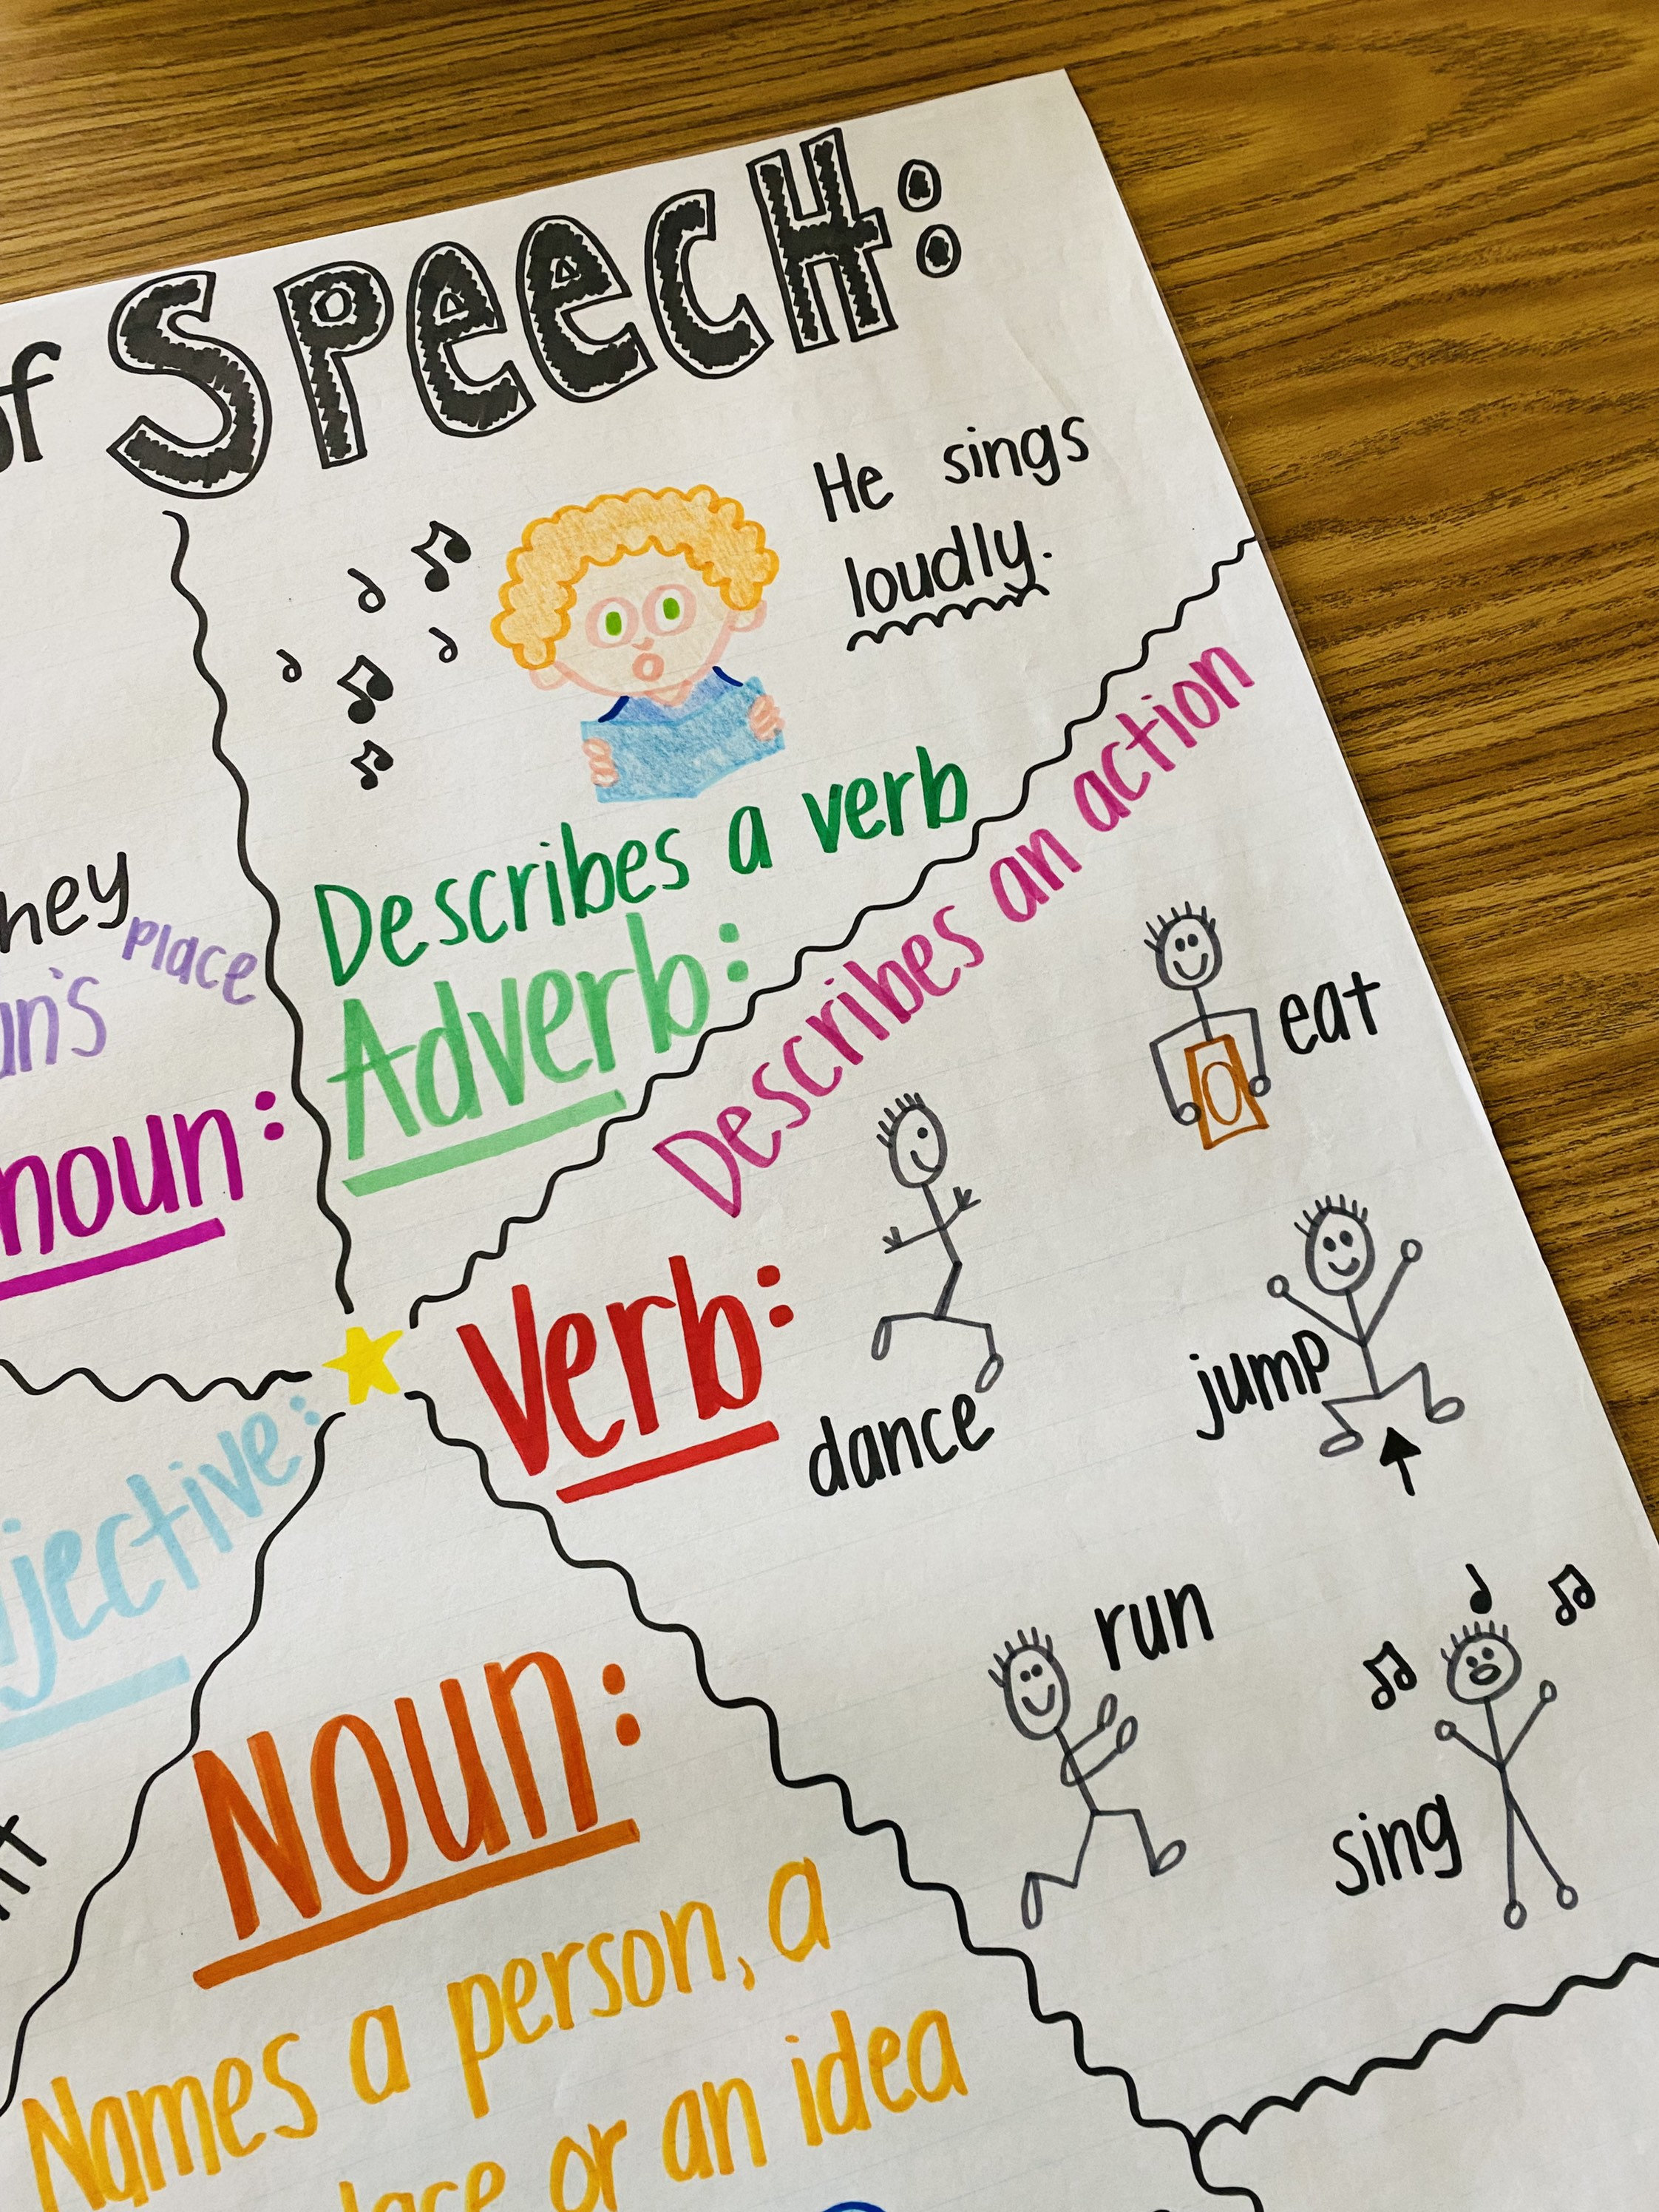 of Speech:
He sings
loudly.
Describes a verb
Adverb:
place
noun:
Describes an action
Verb:
eat
dance
jump
run
sing
Noun:
Names a person, a
or an idea